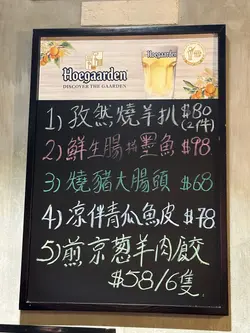 Hoegaarden
DISCOVER THE GAARDEN
1) 孜然燒羊扒 $80
(2件)
2) 鮮生腸拼墨魚 $98
3) 燒豬大腸頭 $68
4) 涼伴青瓜魚皮 $78
5) 煎京葱羊肉餃
$58/6隻